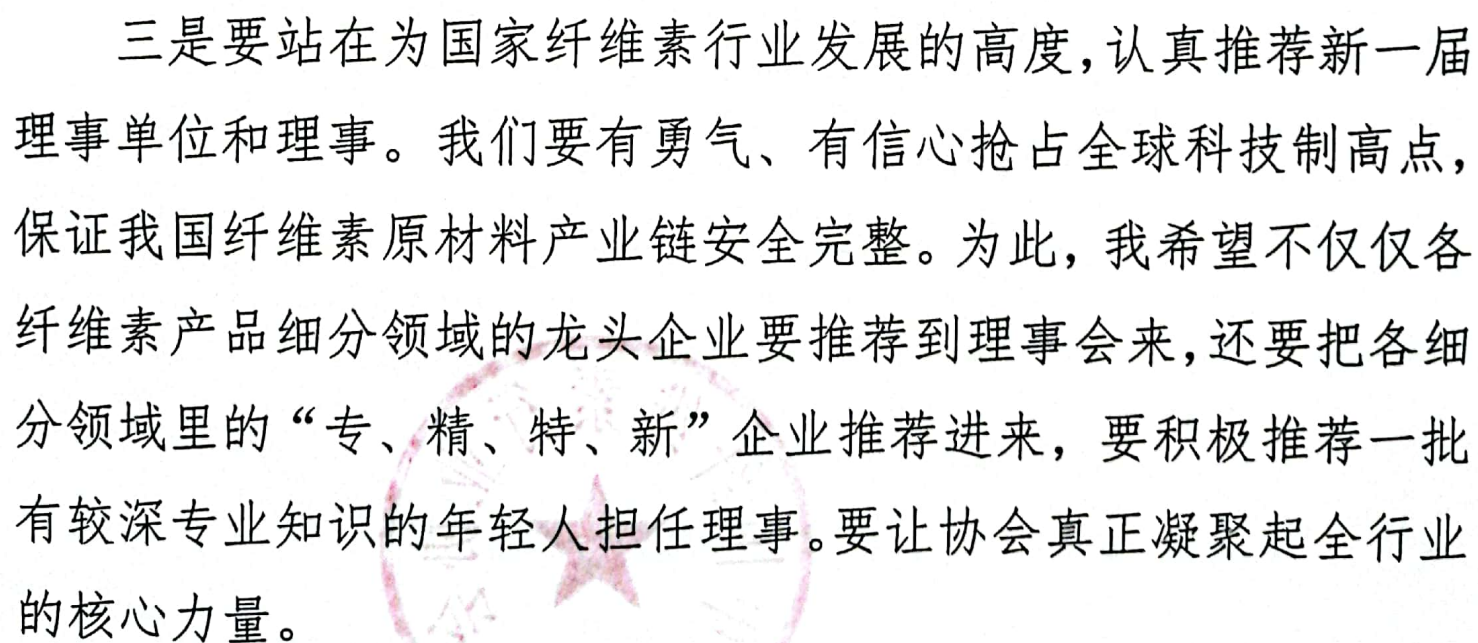 三是要站在为国家纤维素行业发展的高度,认真推荐新一届
理事单位和理事。我们要有勇气、有信心抢占全球科技制高点,
保证我国纤维素原材料产业链安全完整。为此,我希望不仅仅各
纤维素产品细分领域的龙头企业要推荐到理事会来,还要把各细
分领域里的“专、精、特、新”企业推荐进来,要积极推荐一批
有较深专业知识的年轻人担任理事。要让协会真正凝聚起全行业
的核心力量。